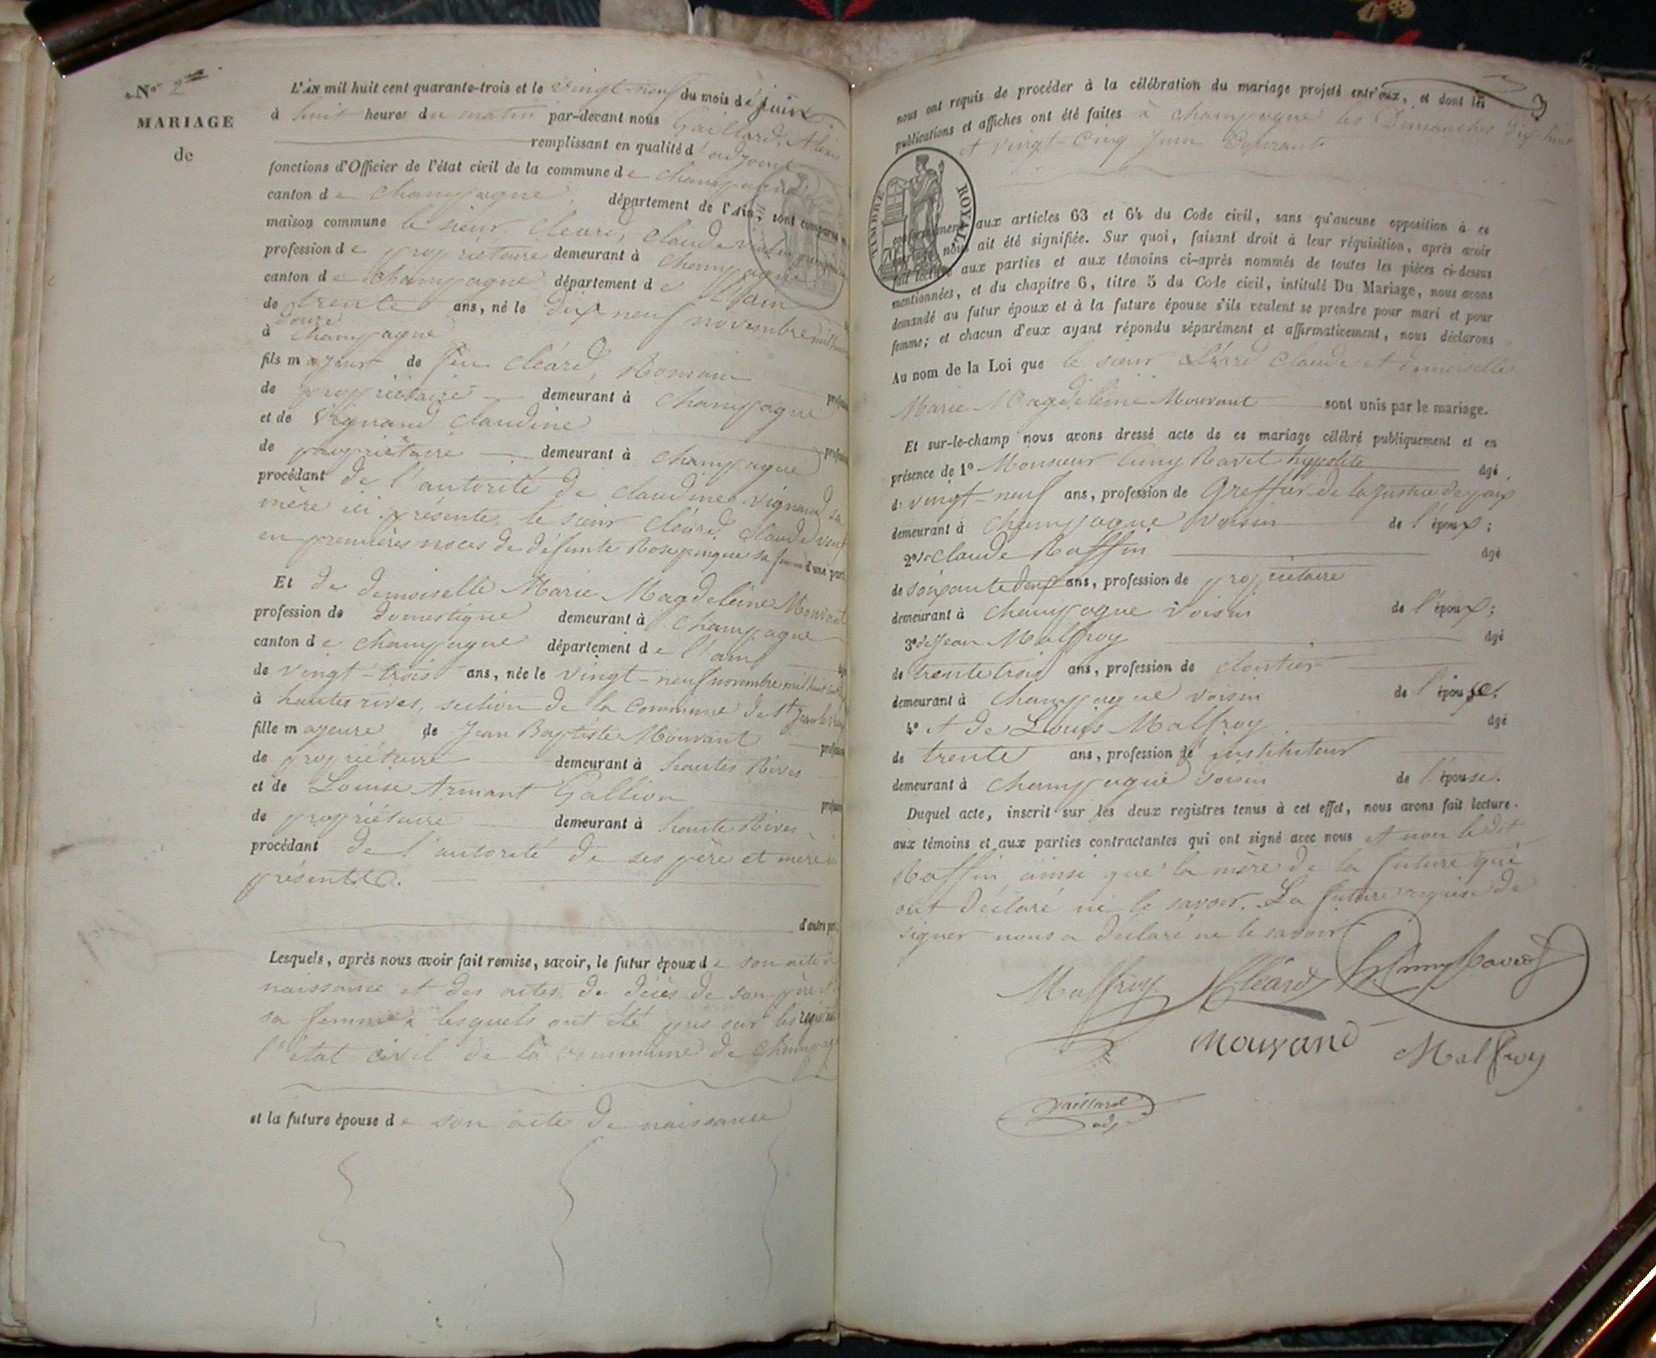 N° 2
MARIAGE
de
L'an mil huit cent quarante-trois et le vingt-neuf du mois de juin
à huit heures du matin par-devant nous Gaillard, Alexis
remplissant en qualité d'adjoint
fonctions d'Officier de l'état civil de la commune de Champagne
canton de Champagne, département de l'Ain, sont comparus
maison commune le sieur Cléard, Claude
profession de propriétaire demeurant à Champagne
canton de Champagne département de l'ain
de trente ans, né le dix neuf novembre mil huit
douze
à Champagne
fils majeur de feu Cléard, Romain
de propriétaire demeurant à Champagne
et de Vignand Claudine
de propriétaire demeurant à Champagne
procédant de l'autorité de Claudine Vignand sa
mère ici présente, le sieur Cléard Claude veuf
en premières noces de défunte Rose sa femme d'une part
Et de demoiselle Marie Magdeleine Mouvant
profession de domestique demeurant à Champagne
canton de Champagne département de l'ain
de vingt-trois ans, née le vingt-neuf novembre mil huit cent
à hautes rives, section de la Commune de St Jean le
fille majeure de Jean Baptiste Mouvant
de propriétaire demeurant à hautes Rives
et de Louise Armant Gallion
de propriétaire demeurant à haute Rives
procédant de l'autorité de ses père et mère
présents.
d'autre part
Lesquels, après nous avoir fait remise, savoir, le futur époux de son acte
naissance et des actes de décès de son père
sa femme lesquels ont été pris sur les
l'état civil de la commune de
et la future épouse de son acte de naissance
nous ont requis de procéder à la célébration du mariage projeté entr'eux, et dont les
publications et affiches ont été faites à Champagne les Dimanches dix huit
et vingt-cinq juin
TIMBRE ROYAL
conformément aux articles 63 et 64 du Code civil, sans qu'aucune opposition à ce
nous ait été signifiée. Sur quoi, faisant droit à leur réquisition, après avoir
fait lecture aux parties et aux témoins ci-après nommés de toutes les pièces ci-dessus
mentionnées, et du chapitre 6, titre 5 du Code civil, intitulé Du Mariage, nous avons
demandé au futur époux et à la future épouse s'ils veulent se prendre pour mari et pour
femme; et chacun d'eux ayant répondu séparément et affirmativement, nous déclarons
Au nom de la Loi que le sieur Cléard Claude et demoiselle
Marie Magdeleine Mouvant sont unis par le mariage.
Et sur-le-champ nous avons dressé acte de ce mariage célébré publiquement et en
présence de 1° Monsieur Cuny Ravet hyppolite âgé
de vingt-neuf ans, profession de Greffier de la justice de paix
demeurant à Champagne voisin de l'époux;
2° Claude Raffin âgé
de soixante deux ans, profession de propriétaire
demeurant à Champagne voisin de l'époux;
3° de Jean Malfroy âgé
de trente trois ans, profession de cloutier
demeurant à Champagne voisin de l'épouse;
4° et de Louis Malfroy âgé
de trente ans, profession de instituteur
demeurant à Champagne voisin de l'épouse.
Duquel acte, inscrit sur les deux registres tenus à cet effet, nous avons fait lecture
aux témoins et aux parties contractantes qui ont signé avec nous et non le dit
Raffin ainsi que la mère de la future qui
ont déclaré ne le savoir. La future requise de
signer nous a déclaré ne le savoir
Malfroy Cléard Cuny Ravet
Mouvand Malfroy
Gaillard
adj